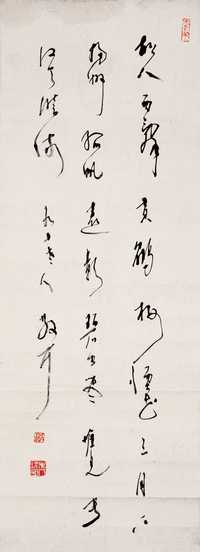 故人西辭黃鶴樓煙花三月下
揚州孤帆遠影碧空盡唯見長
江天際流 老人散耳